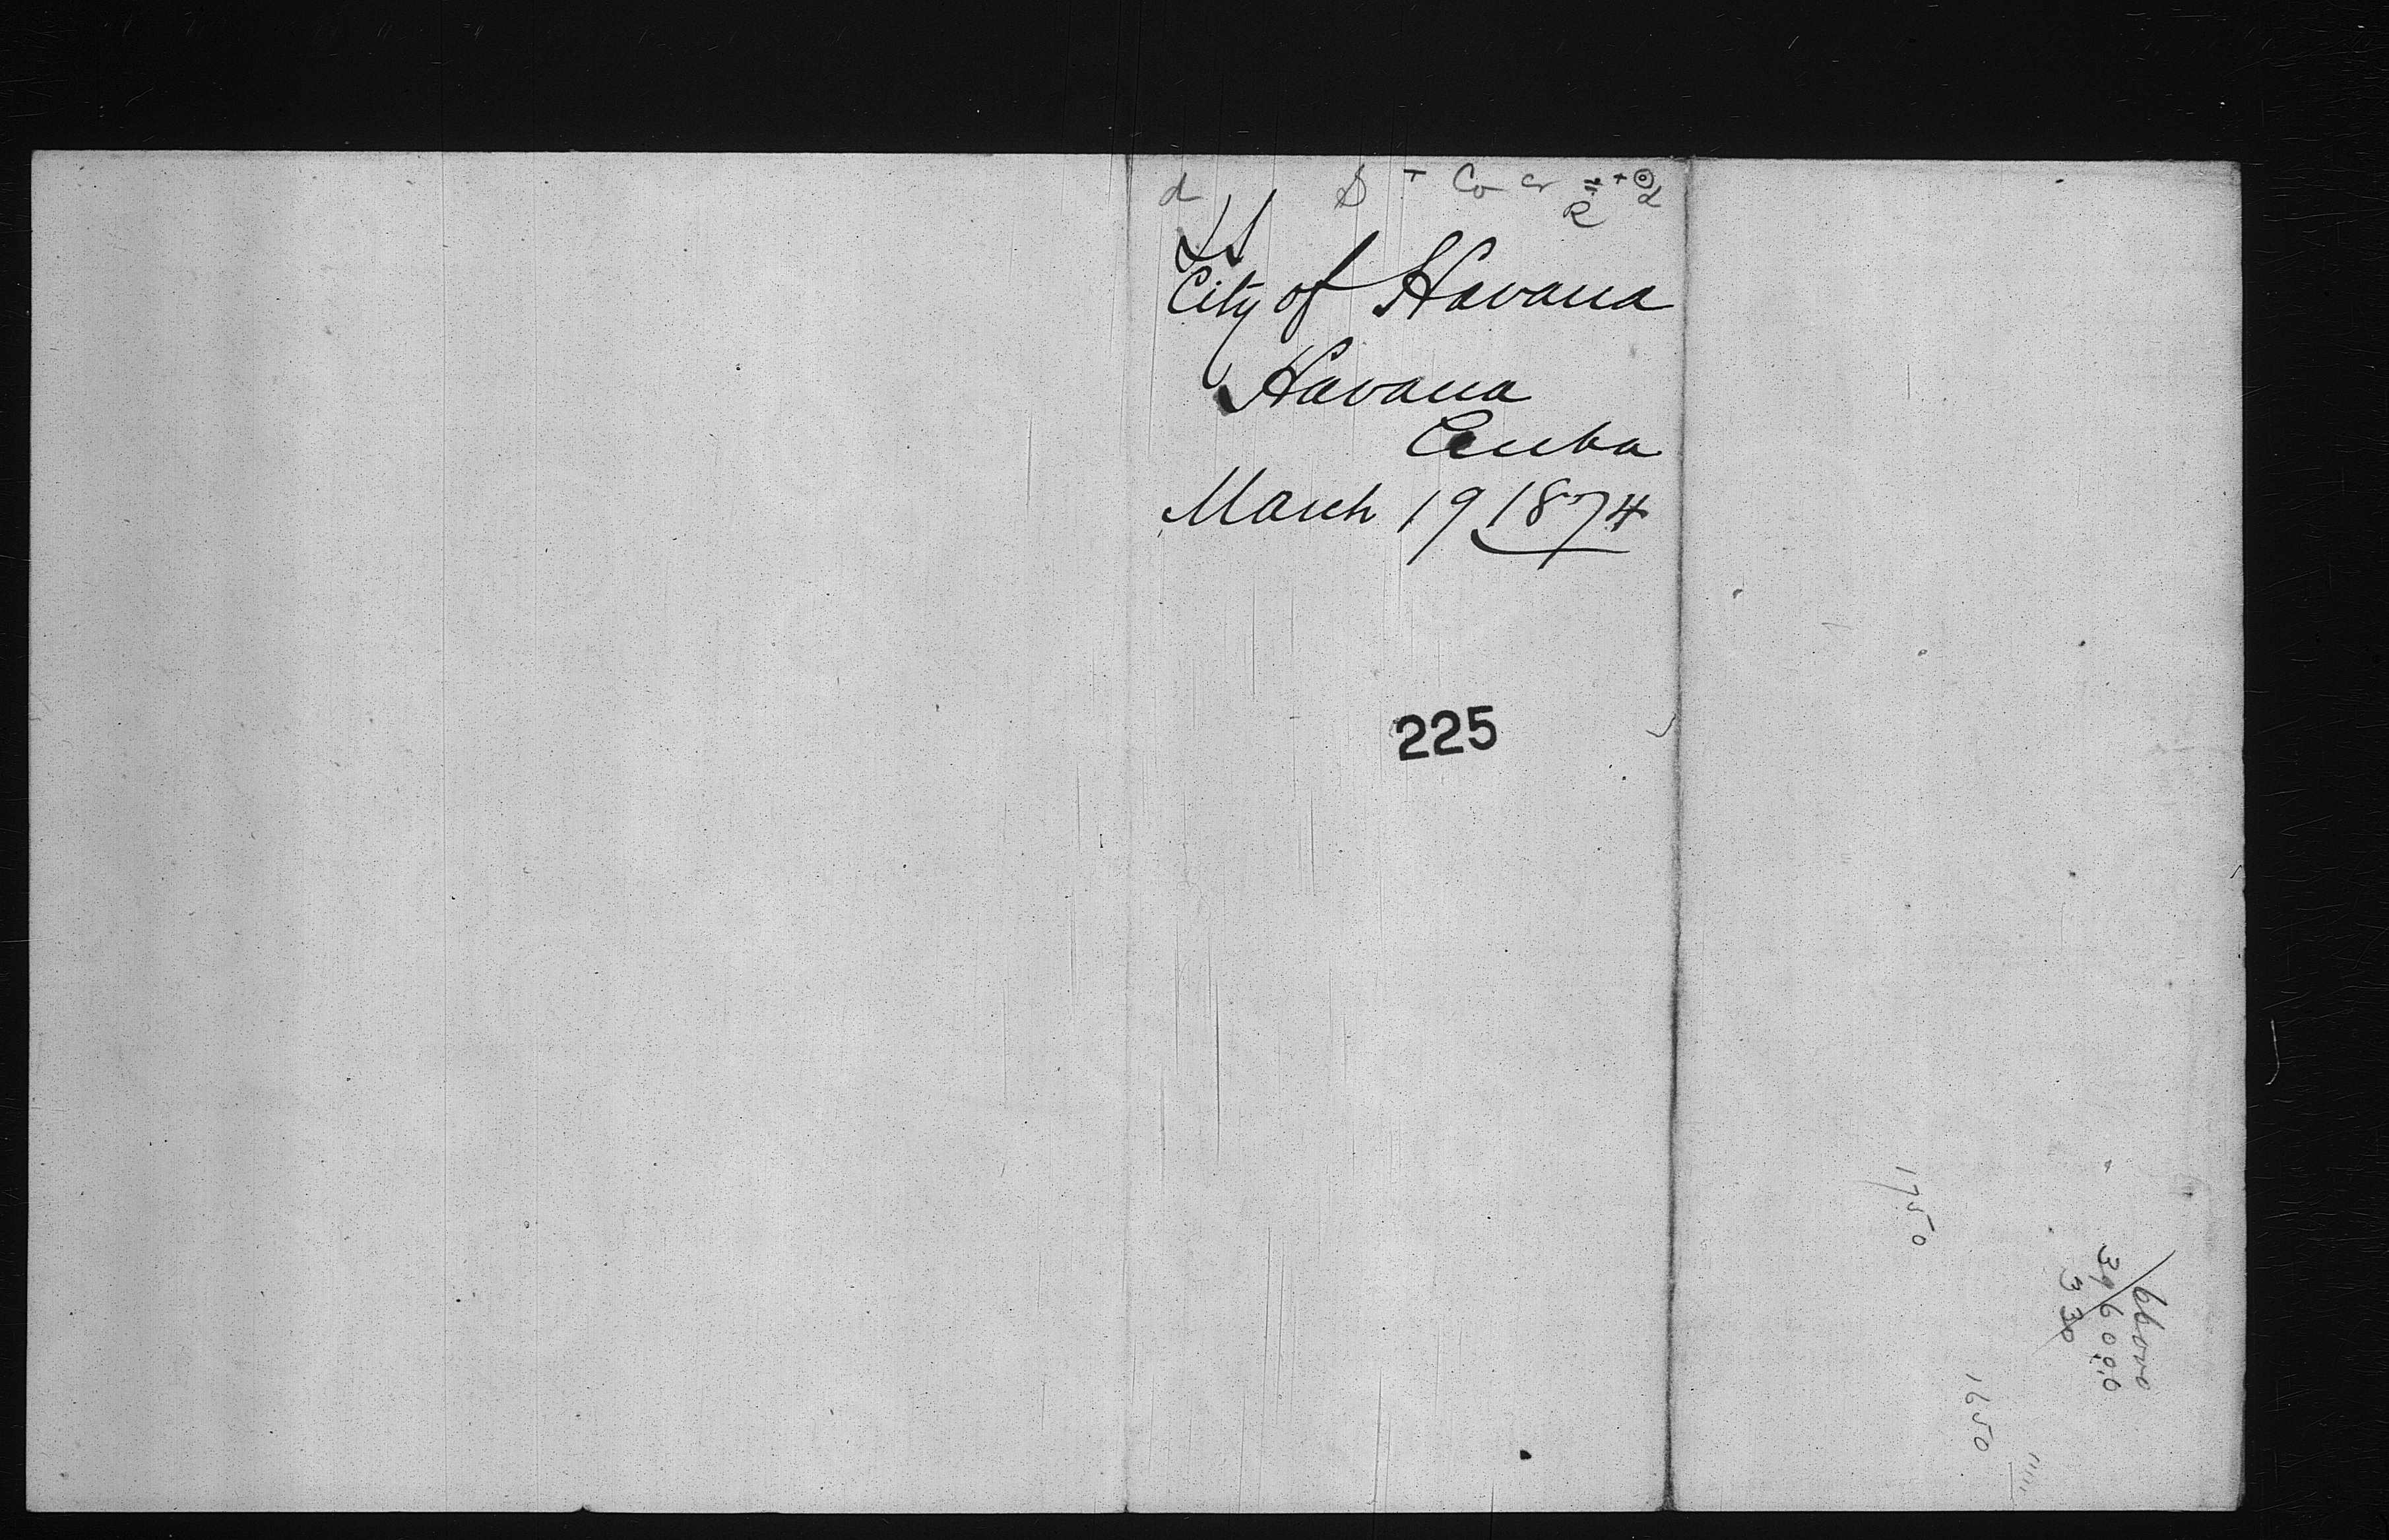 d D + Co Cr
R
SS
City of Havana
Havana
Cuba
March 19 1874
225
1750
66000
39600.0
330
1650